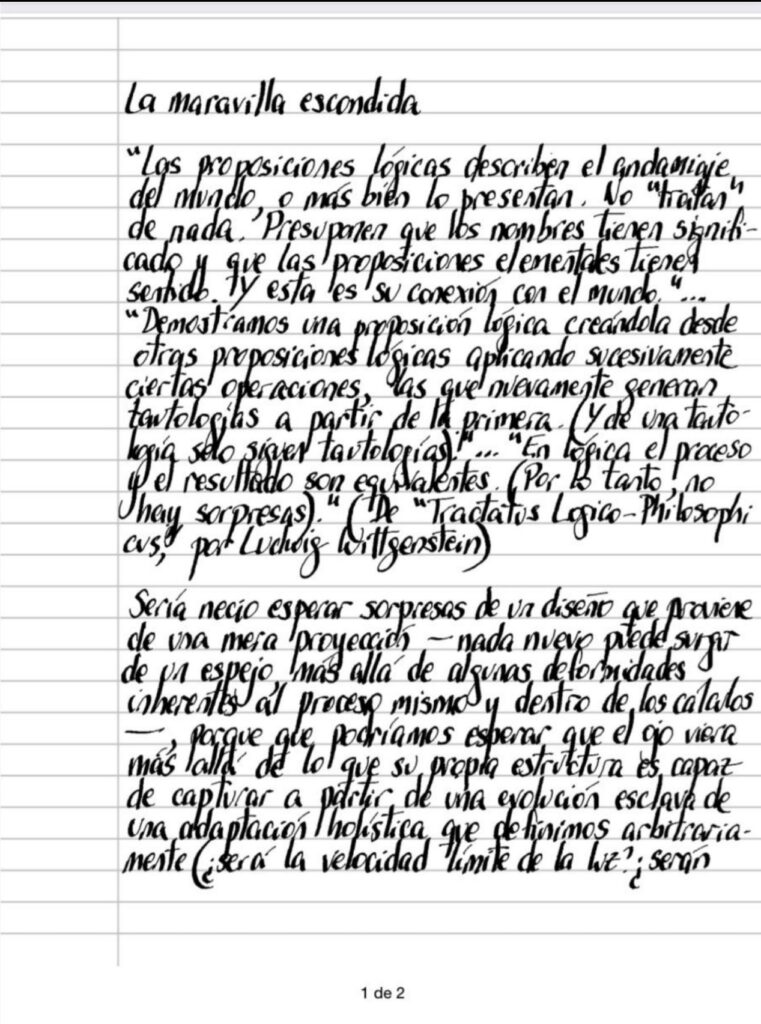 La maravilla escondida
"Las proposiciones lógicas describen el andamiaje
del mundo, o más bien lo presentan. No "tratan"
de nada. Presuponen que los nombres tienen signifi-
cado y que las proposiciones elementales tienen
sentido. Y esta es su conexión con el mundo."...
"Demostramos una proposición lógica creándola desde
otras proposiciones lógicas aplicando sucesivamente
ciertas operaciones, las que nuevamente generan
tautologías a partir de la primera. (Y de una tauto-
logía sólo siguen tautologías)."... "En lógica el proceso
y el resultado son equivalentes. (Por lo tanto, no
hay sorpresas)." (De "Tractatus Logico-Philosophi
cus," por Ludwig Wittgenstein)
Sería necio esperar sorpresas de un diseño que proviene
de una mera proyección — nada nuevo puede surgir
de un espejo, más allá de algunas deformidades
inherentes al proceso mismo y dentro de los cálculos
—, porque que podríamos esperar que el ojo viera
más allá de lo que su propia estructura es capaz
de capturar a partir de una evolución esclava de
una adaptación holística que definimos arbitraria-
mente (¿será la velocidad límite de la luz? ¿serán
1 de 2